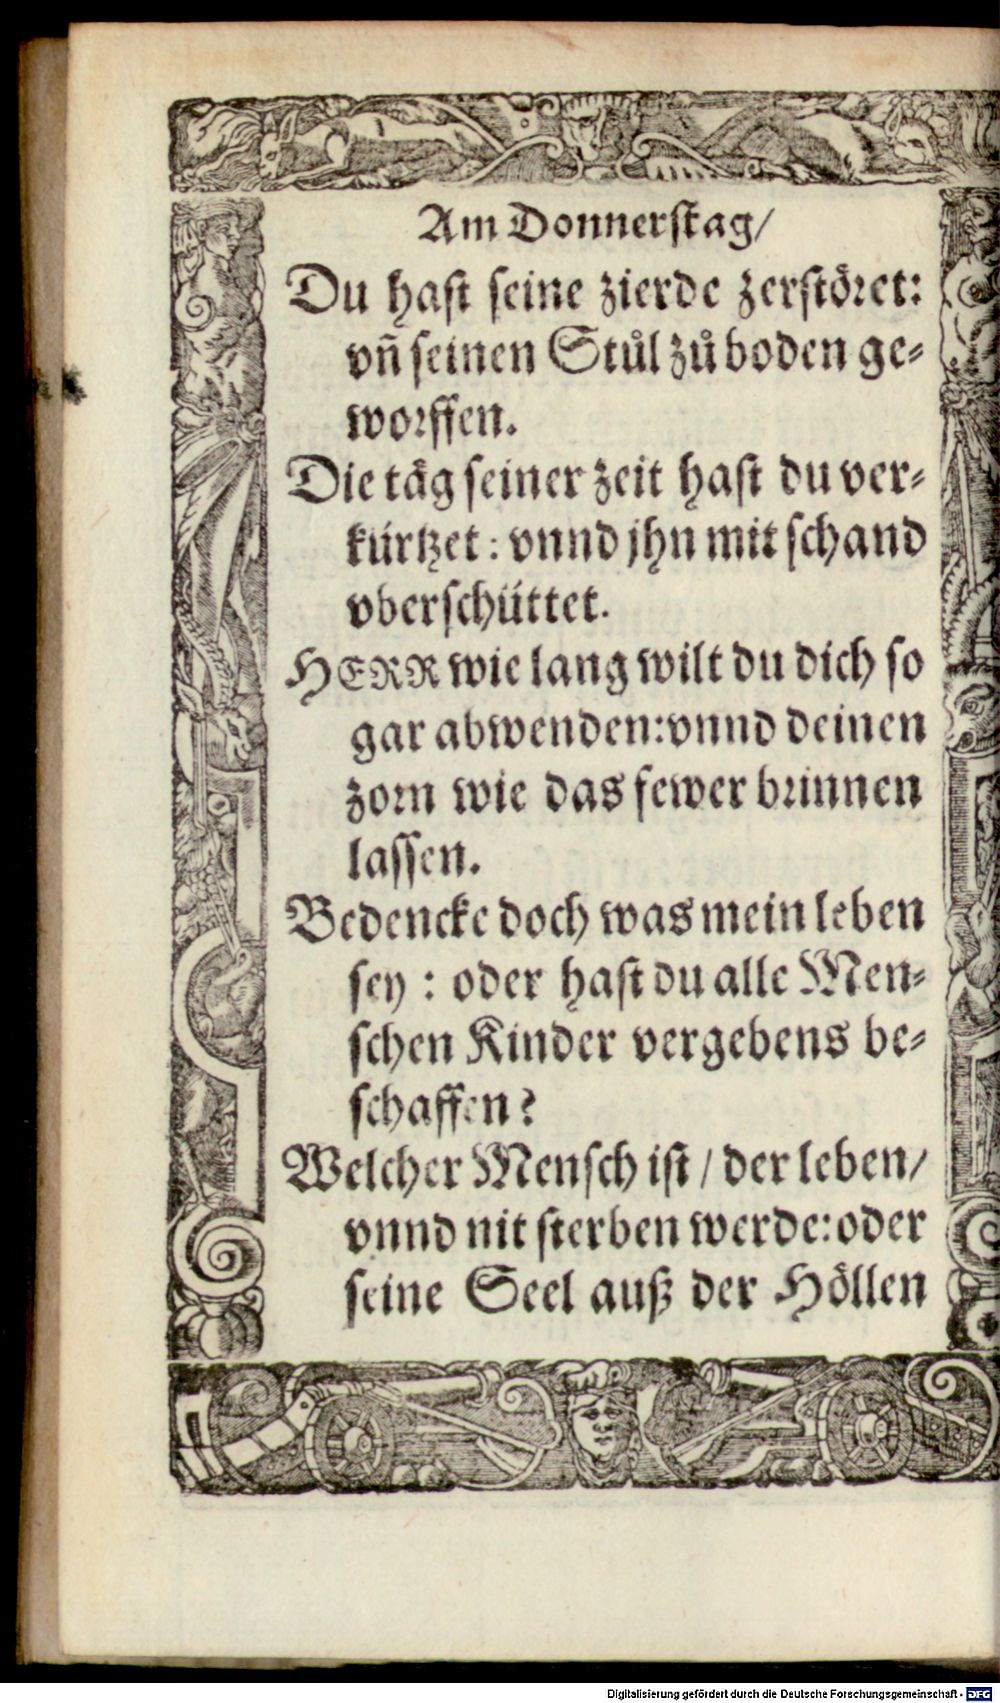 Am Donnerstag/
Du hast seine zierde zerstöret:
vñ seinen Stůl zů boden ge-
worffen.
Die täg seiner zeit hast du ver-
kürtzet: vnnd jhn mit schand
vberschüttet.
HERR wie lang wilt du dich so
gar abwenden: vnnd deinen
zorn wie das fewer brinnen
lassen.
Bedencke doch was mein leben
sey: oder hast du alle Men-
schen Kinder vergebens be-
schaffen?
Welcher Mensch ist/ der leben/
vnnd nit sterben werde: oder
seine Seel auß der Höllen
Digitalisierung gefördert durch die Deutsche Forschungsgemeinschaft - DFG